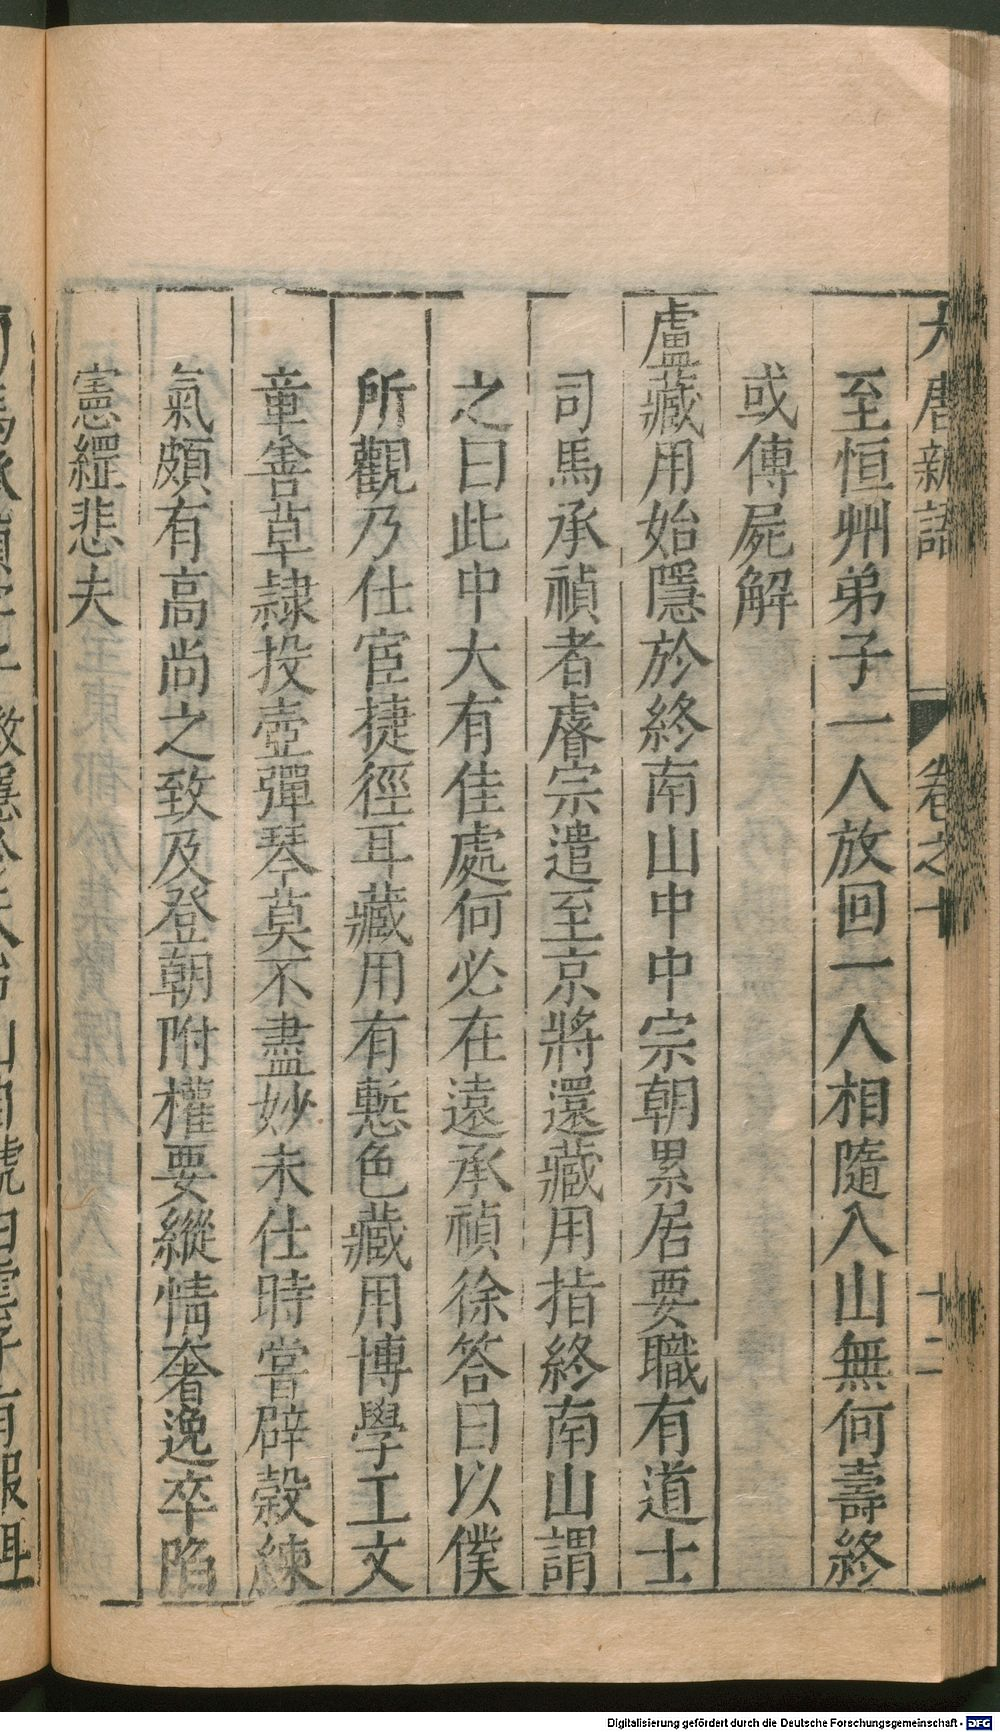 大唐新語 卷之十 十二
至恒州弟子一人放回一人相隨入山無何壽終
或傳屍解
盧藏用始隱於終南山中中宗朝累居要職有道士
司馬承禎者睿宗遣至京將還藏用指終南山謂
之曰此中大有佳處何必在遠承禎徐答曰以僕
所觀乃仕宦捷徑耳藏用有慙色藏用博學工文
章善草隸投壺彈琴莫不盡妙未仕時嘗辟穀練
氣頗有高尚之致及登朝附權要縱情奢逸卒陷
憲綱悲夫
Digitalisierung gefördert durch die Deutsche Forschungsgemeinschaft - DFG